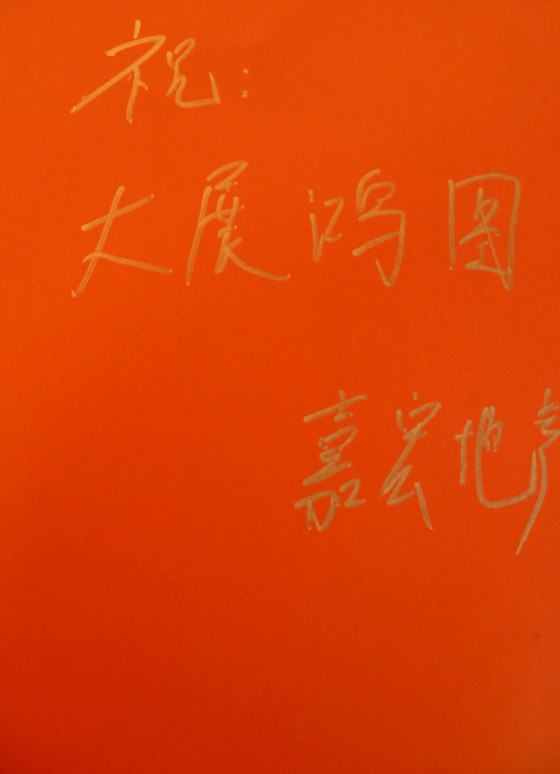 祝：
大展鸿图
嘉宏地产